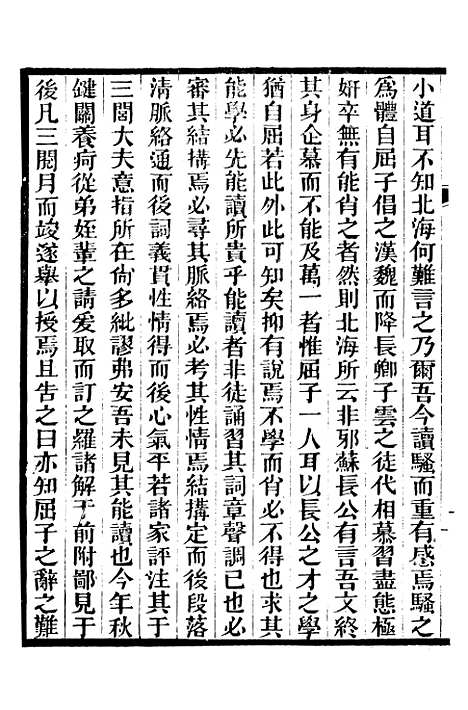 小道耳不知北海何難言之乃爾吾今讀騷而重有感焉騷之
爲體自屈子倡之漢魏而降長卿子雲之徒代相慕習盡態極
妍卒無有能肖之者然則北海所云非邪蘇長公有言吾文終
其身企慕而不能及萬一者惟屈子一人耳以長公之才之學
猶自屈若此外此可知矣抑有說焉不學而肖必不得也求其
能學必先能讀所貴乎能讀者非徒誦習其詞章聲調已也必
審其結構焉必尋其脈絡焉必考其性情焉結構定而後段落
清脈絡通而後詞義貫性情得而後心氣平若諸家評注其于
三閭大夫意指所在尙多紕謬弗安吾未見其能讀也今年秋
鍵關養疴從弟姪輩之請爰取而訂之羅諸解于前附鄙見于
後凡三閱月而竣遂舉以授焉且告之曰亦知屈子之辭之難